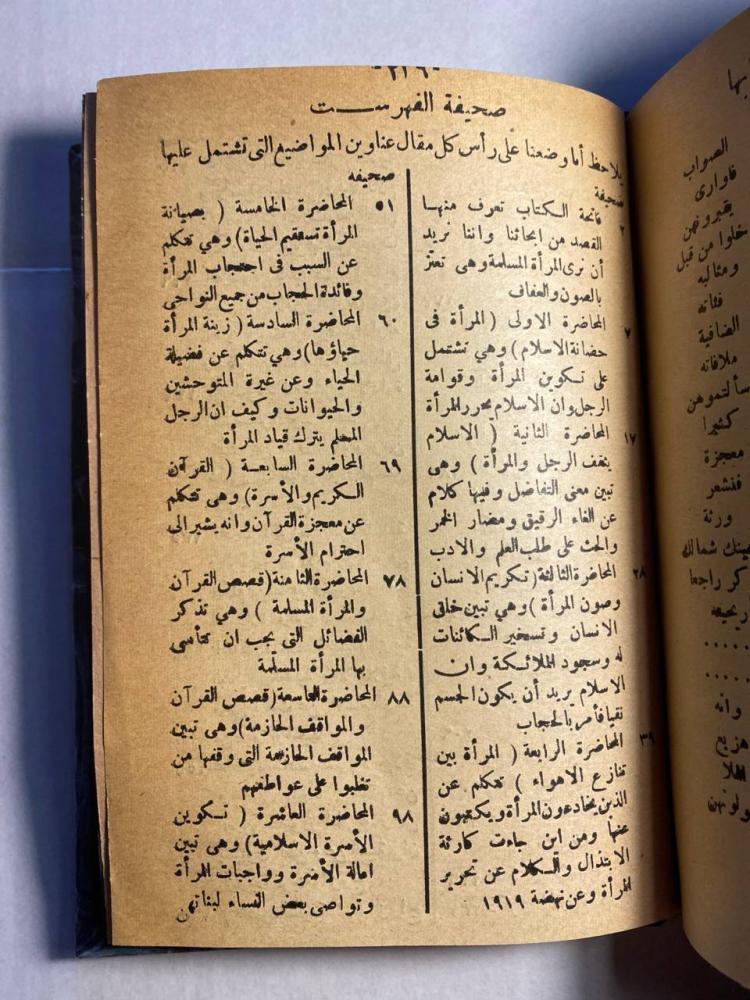 ٢٢٦
صحيفة الفهرست
يلاحظ أما وضعنا على رأس كل مقال عناوين المواضيع التي تشتمل عليها
صحيفة
٢ فاتحة الكتاب تعرف منها
القصد من ابحاثنا واننا نريد
أن نرى المرأة المسلمة وهى تعتز
بالصون والعفاف
٧ المحاضرة الاولى ( المرأة فى
حضانة الاسلام ) وهى تشتمل
على تكوين المرأة وقوامة
الرجل وان الاسلام يحرر المرأة
١٧ المحاضرة الثانية ( الاسلام
يثقف الرجل والمرأة ) وهى
تبين معنى التفاضل وفيها كلام
عن الغاء الرقيق ومضار الخمر
والحث على طلب العلم والادب
٢٨ المحاضرة الثالثة ( تكريم الانسان
وصون المرأة ) وهى تبين خلق
الانسان وتسخير الكائنات
له وسجود الملائكة وان
الاسلام يريد أن يكون الجسم
نقيا فأمر بالحجاب
٣٩ المحاضرة الرابعة ( المرأة بين
تنازع الاهواء ) تتكلم عن
الذين يخادعون المرأة ويكتبون
عنها ومن اين جاءت كارثة
الابتذال والكلام عن تحرير
المرأة وعن نهضة ١٩١٩
صحيفه
٥١ المحاضرة الخامسة ( بصيانة
المرأة تستقيم الحياة ) وهى تتكلم
عن السبب فى احتجاب المرأة
وفائدة الحجاب من جميع النواحى
٦٠ المحاضرة السادسة ( زينة المرأة
حياؤها ) وهى تتكلم عن فضيلة
الحياء وعن غيرة المتوحشين
والحيوانات وكيف ان الرجل
المعلم يترك قياد المرأة
٦٩ المحاضرة السابعة ( القرآن
الكريم والأسرة ) وهى تتكلم
عن معجزة القرآن وانه يشير الى
احترام الأسرة
٧٨ المحاضرة الثامنة ( قصص القرآن
والمرأة المسلمة ) وهى تذكر
الفضائل التى يجب ان تتأسى
بها المرأة المسلمة
٨٨ المحاضرة التاسعة ( قصص القرآن
والمواقف الحازمة ) وهى تبين
المواقف الحازمة التى وقفها من
تغلبوا على عواطفهم
٩٨ المحاضرة العاشرة ( تكوين
الأسرة الاسلامية ) وهى تبين
اصالة الأسرة وواجبات المرأة
وتواصى بعض النساء لبناتهن
الصواب
فاوارى
يقبرونهن
خلوا من قبل
ومثاليه
فئاته
الضافية
ملاقاته
سألتموهن
كثيرا
معجزة
فتشعر
ورثة
كر راجعا
وانه
هزيع